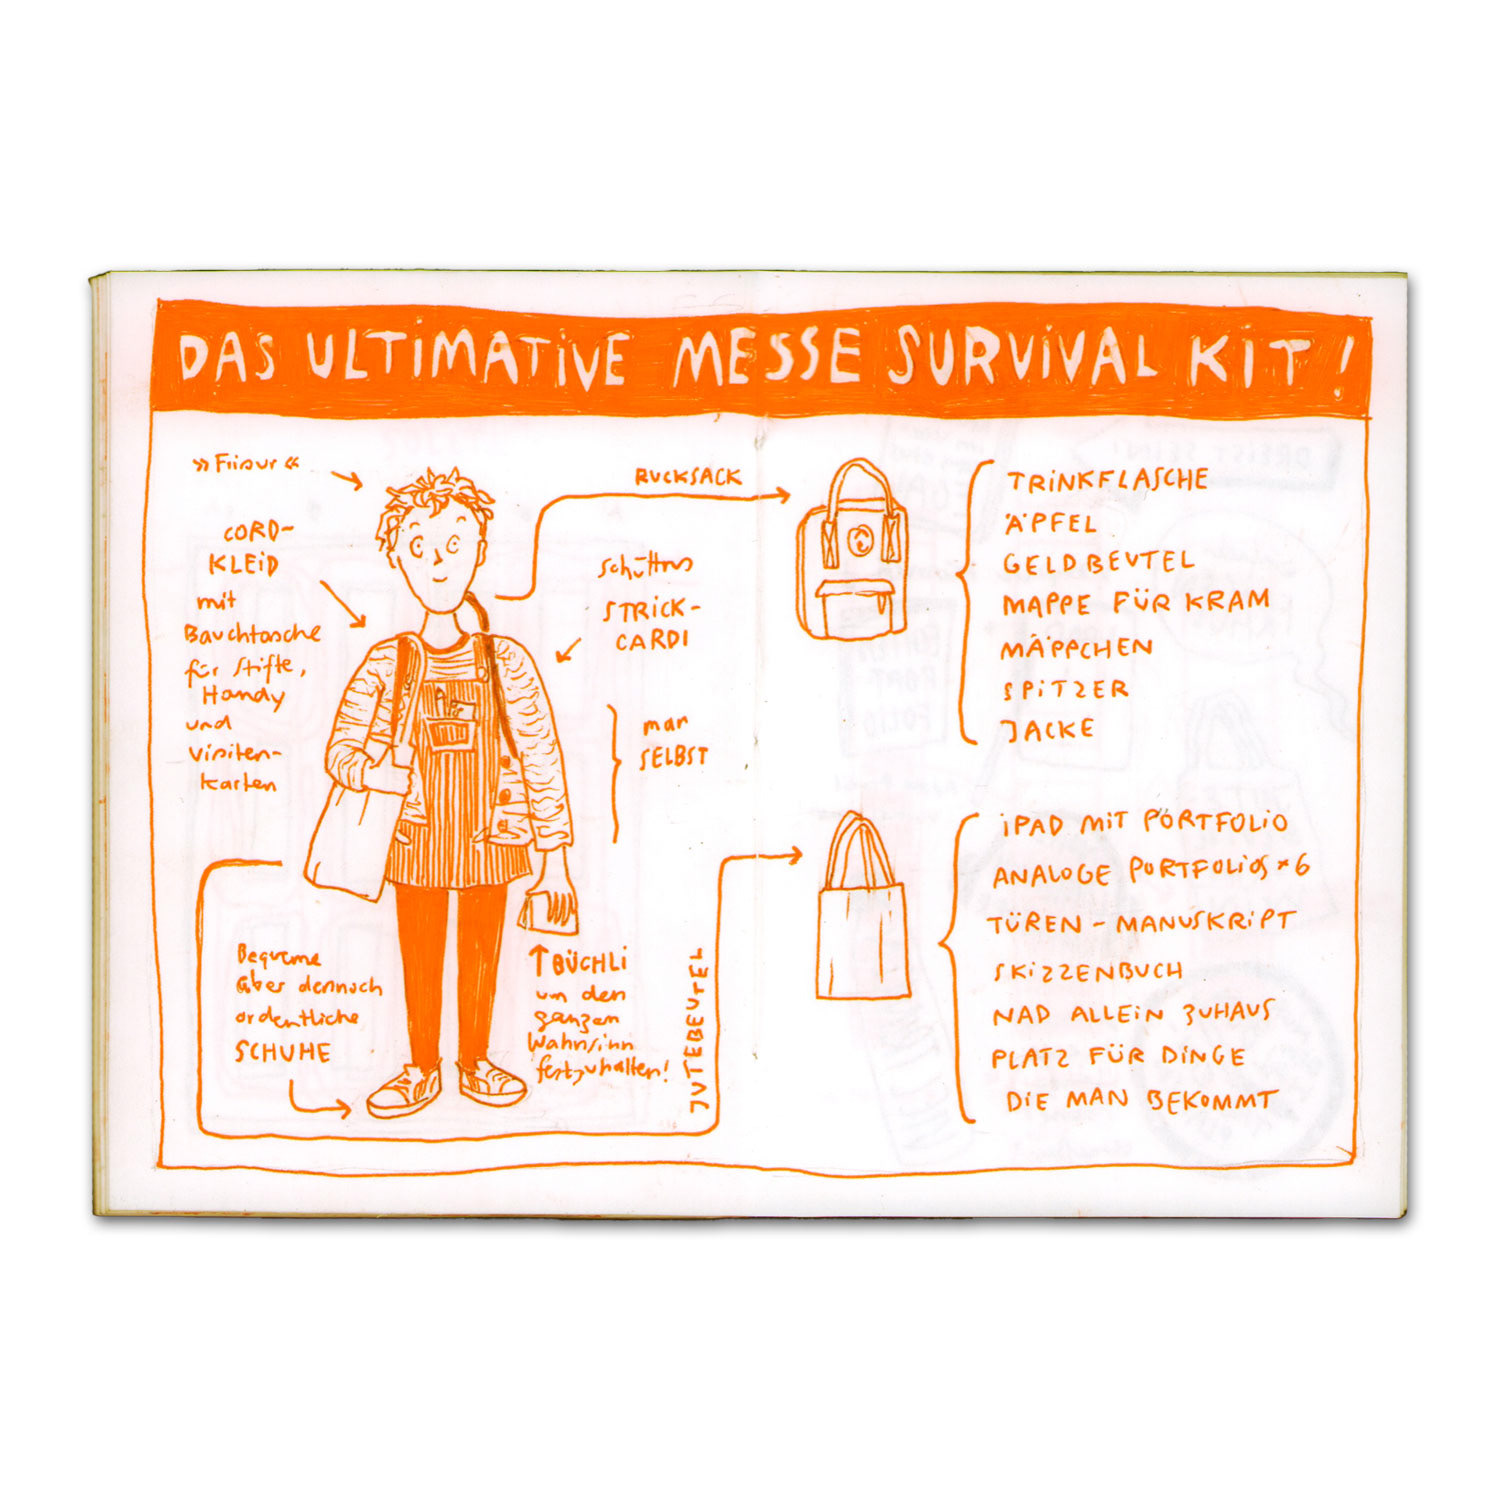 DAS ULTIMATIVE MESSE SURVIVAL KIT!
»Frisur«
CORD-
KLEID
mit
Bauchtasche
für Stifte,
Handy
und
Visiten-
karten
RUCKSACK
STRICK-
CARDI
man
SELBST
Bequeme
aber dennoch
ordentliche
SCHUHE
↑BÜCHLI
um den
ganzen
Wahnsinn
festzuhalten!
JUTEBEUTEL
TRINKFLASCHE
ÄPFEL
GELDBEUTEL
MAPPE FÜR KRAM
MÄPPCHEN
SPITZER
JACKE
iPAD MIT PORTFOLIO
ANALOGE PORTFOLIOS × 6
TÜREN-MANUSKRIPT
SKIZZENBUCH
NAD ALLEIN ZUHAUS
PLATZ FÜR DINGE
DIE MAN BEKOMMT